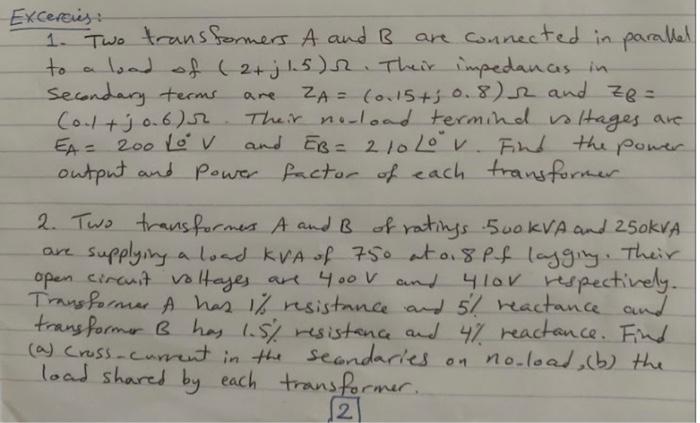 Excerceis:
1. Two transformers A and B are connected in parallel
to a load of (2+j1.5)Ω. Their impedances in
secondary terms are ZA = (0.15+j0.8)Ω and ZB =
(0.1+j0.6)Ω. Their no-load terminal voltages are
EA = 200 ∠0° V and EB = 210 ∠0° V. Find the power
output and power factor of each transformer
2. Two transformers A and B of ratings 500KVA and 250KVA
are supplying a load KVA of 750 at 0.8 P.f lagging. Their
open circuit voltages are 400V and 410V respectively.
Transformer A has 1% resistance and 5% reactance and
transformer B has 1.5% resistance and 4% reactance. Find
(a) cross-current in the secondaries on no-load, (b) the
load shared by each transformer.
2